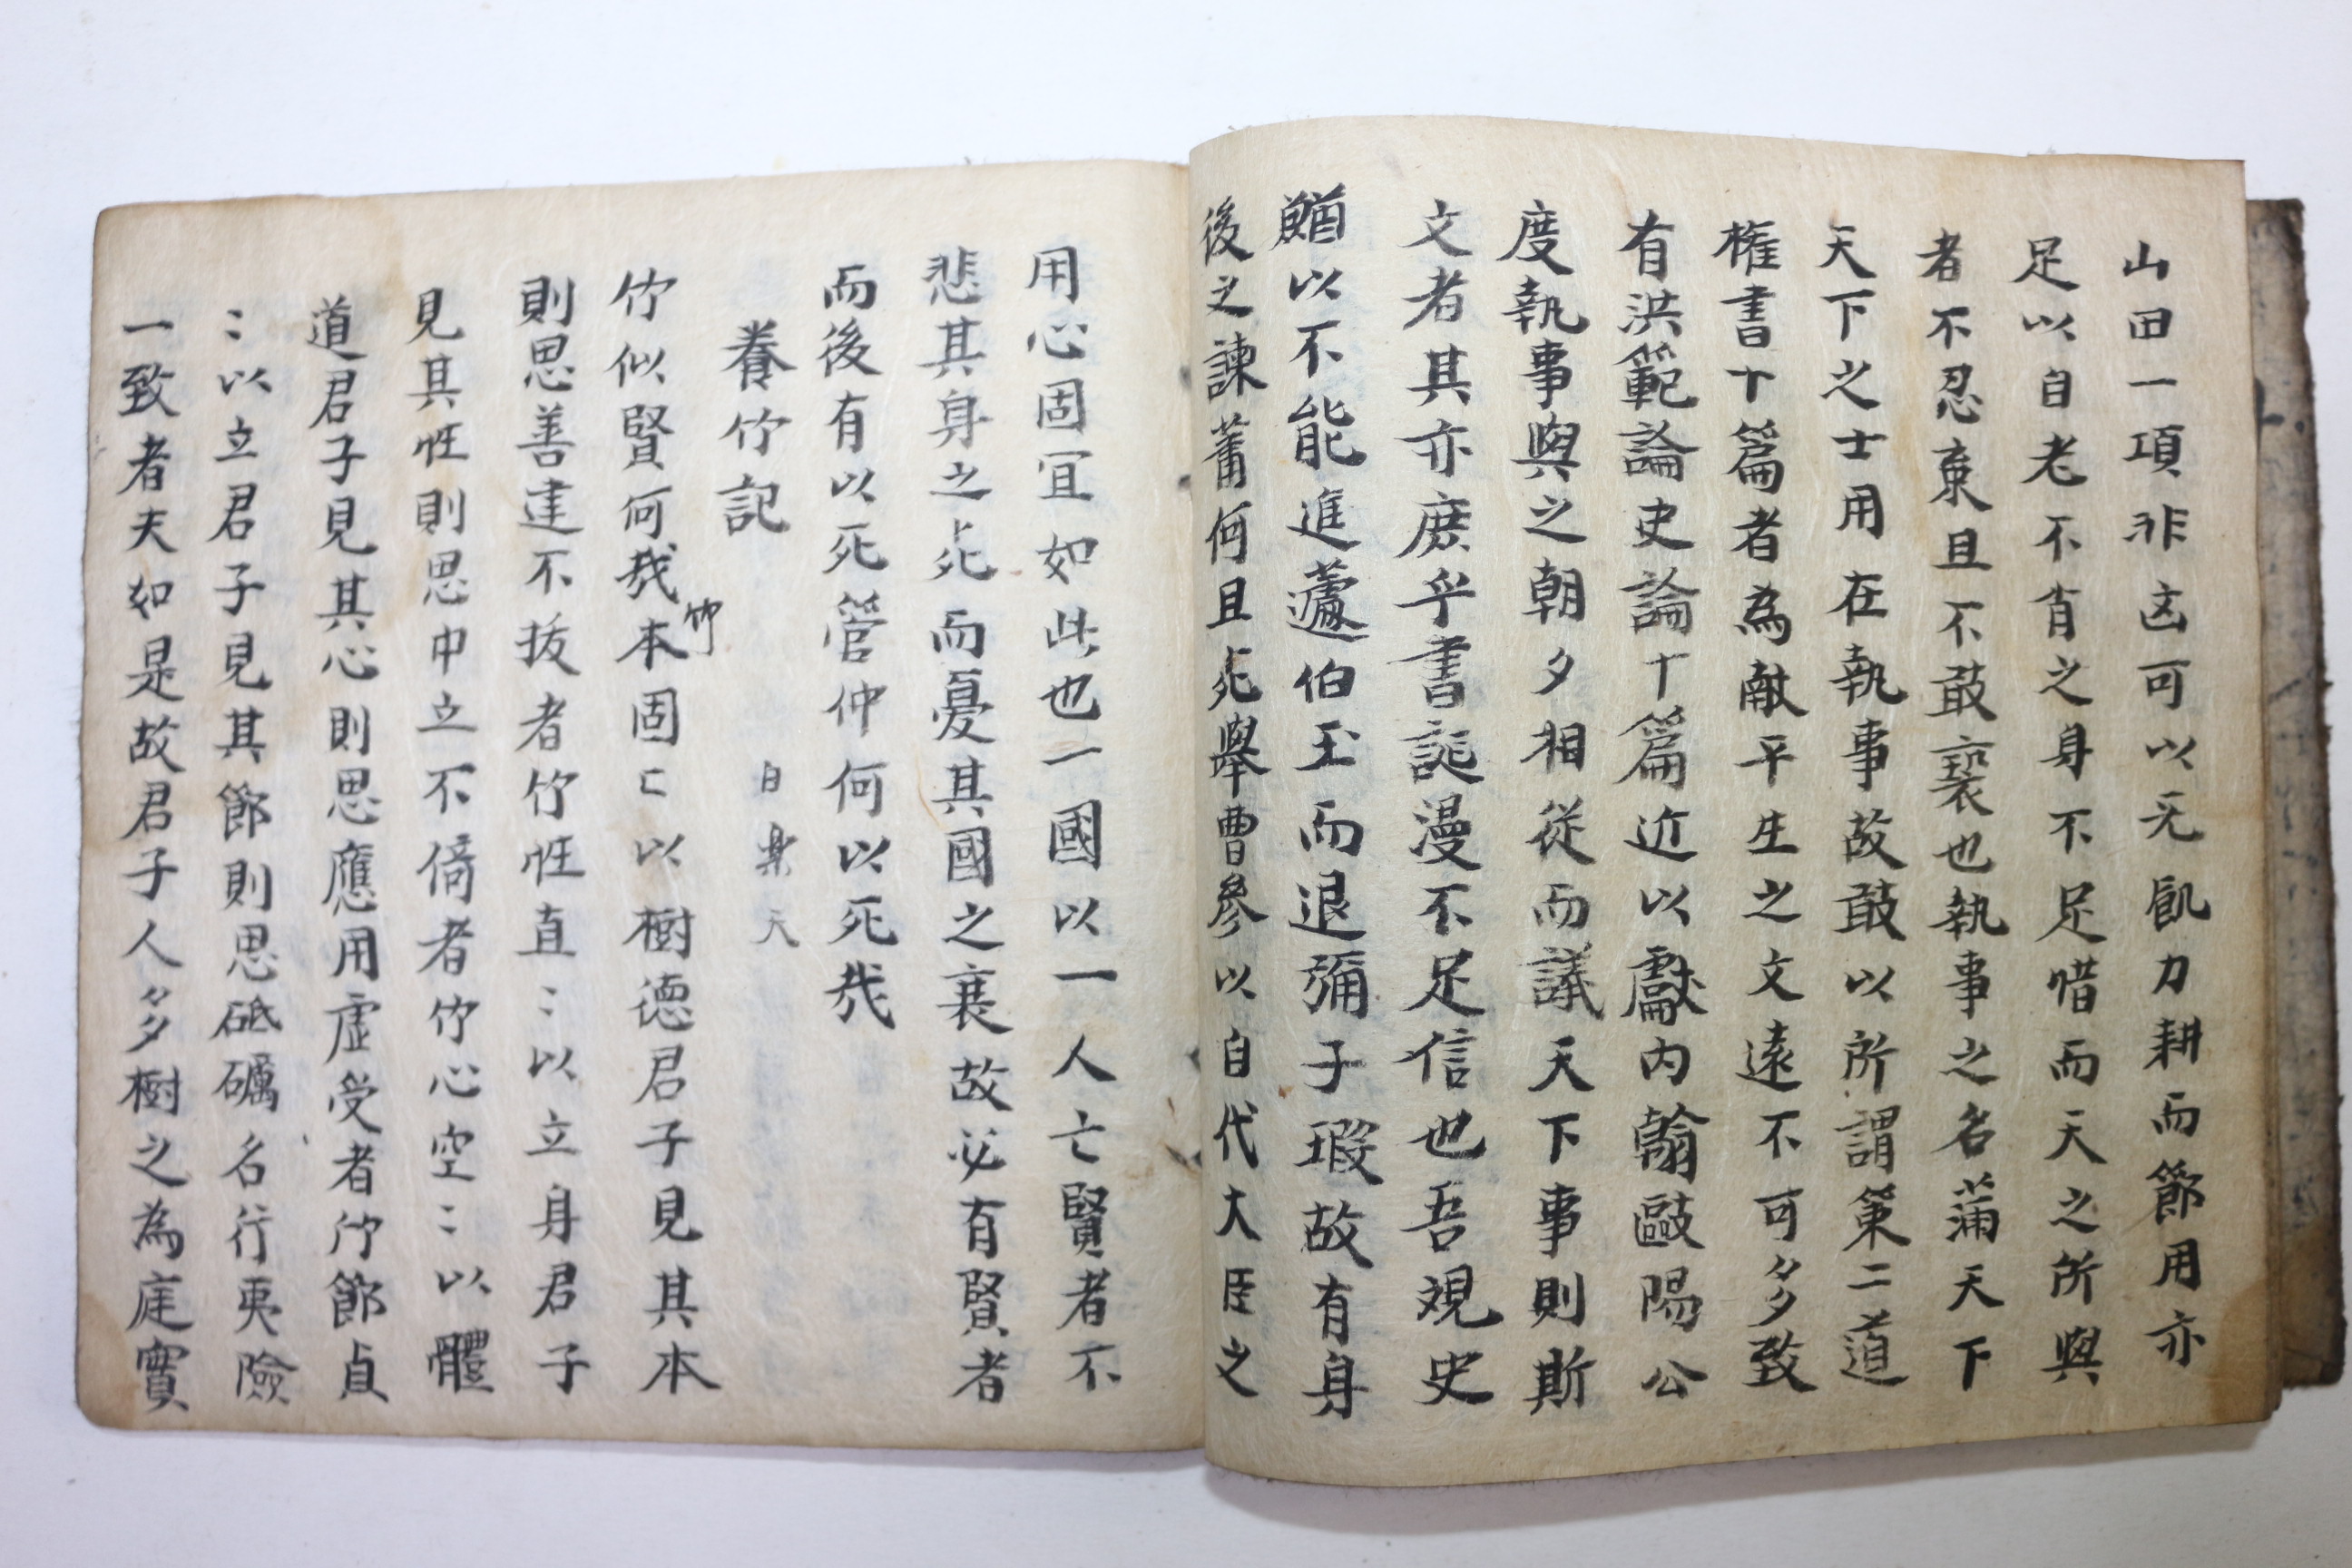 山田一項非凶可以无飢力耕而節用亦
足以自老不肖之身不足惜而天之所與
者不忍棄且不敢褻也執事之名蒲天下
天下之士用在執事故敢以所謂策二道
權書十篇者為献平生之文遠不可多致
有洪範論史論十篇近以獻内翰歐陽公
度執事與之朝夕相從而議天下事則斯
文者其亦庶乎書誕漫不足信也吾覌史
鰌以不能進蘧伯玉而退彌子瑕故有身
後之諫蕭何且死舉曹參以自代大臣之
用心固冝如此也一國以一人亡賢者不
悲其身之死而憂其國之衰故必有賢者
而後有以死管仲何以死哉
養竹記
白樂天
竹似賢何哉竹本固匚以樹德君子見其本
則思善建不拔者竹性直〻以立身君子
見其性則思中立不倚者竹心空〻以體
道君子見其心則思應用虛受者竹節貞
〻以立君子見其節則思砥礪名行夷險
一致者夫如是故君子人多樹之為庭實